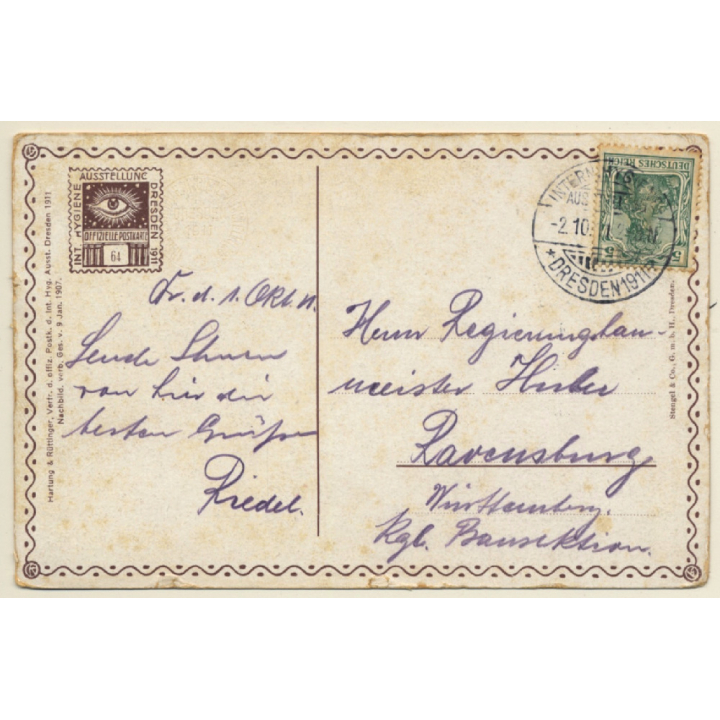 AUSSTELLUNG
INT. HYGIENE
DRESDEN 1911
OFFIZIELLE POSTKARTE
64
Dr. d. 1. Okt. 11.
Sende Ihnen
von hier die
besten Grüße
Riedel.
Hartung & Rüttinger, Vertr. d. offiz. Postk. d. Int. Hyg. Ausst. Dresden 1911
Nachbild. verb. Ges. v. 9 Jan. 1907.
DEUTSCHES REICH
5
INTERN. HYG.
AUS
-2.10.
*DRESDEN 1911
Herrn Regierungsbau-
meister Huber
Ravensburg
Württemberg.
Kgl. Bausektion.
Stengel & Co., G. m. b. H., Dresden.